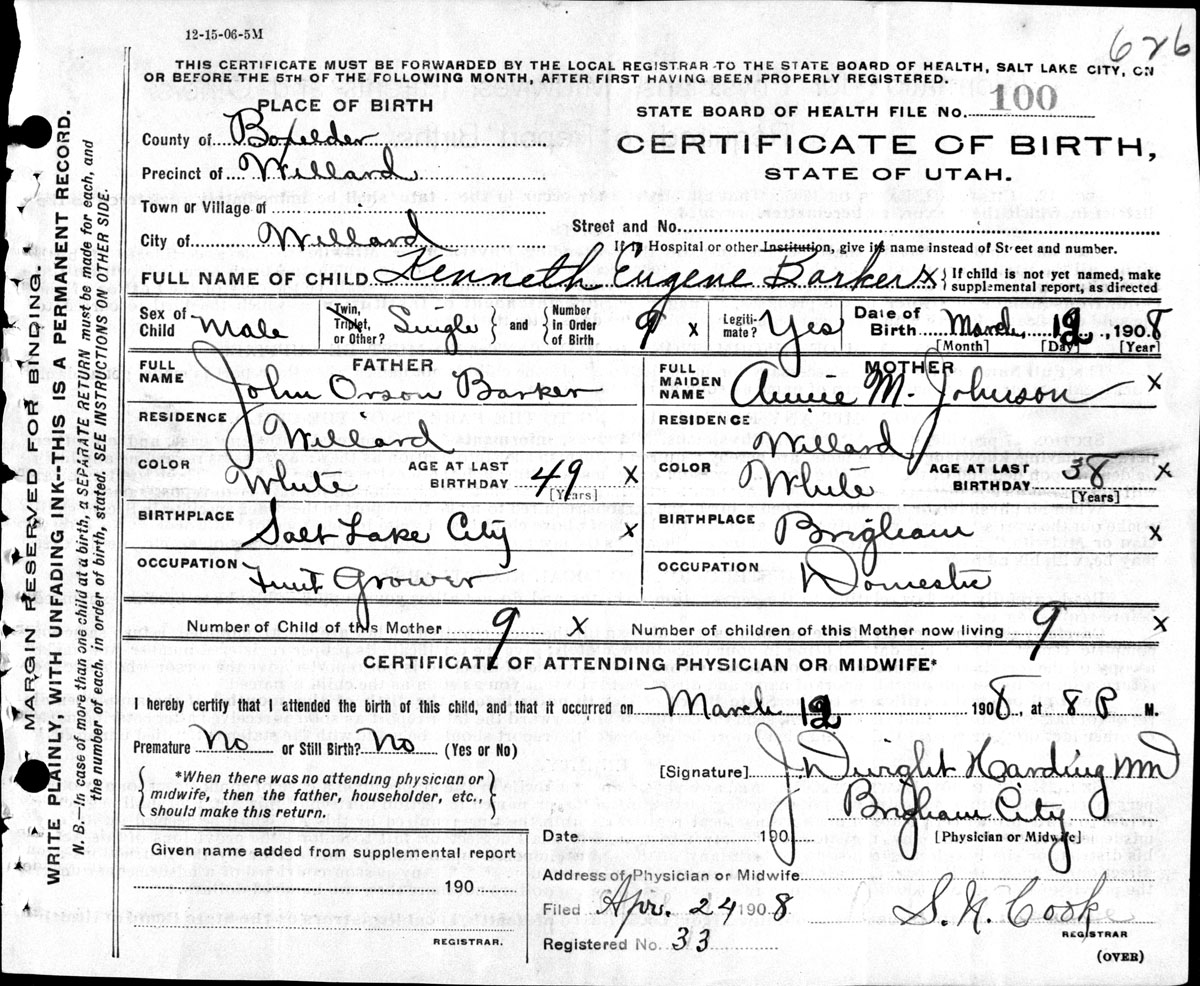 12-15-06-5M
626
THIS CERTIFICATE MUST BE FORWARDED BY THE LOCAL REGISTRAR TO THE STATE BOARD OF HEALTH, SALT LAKE CITY, ON
OR BEFORE THE 5TH OF THE FOLLOWING MONTH, AFTER FIRST HAVING BEEN PROPERLY REGISTERED.
PLACE OF BIRTH
STATE BOARD OF HEALTH FILE NO. 100
County of Boxelder
CERTIFICATE OF BIRTH,
STATE OF UTAH.
Precinct of Willard
Town or Village of
Street and No.
City of Willard
If in Hospital or other Institution, give its name instead of Street and number.
FULL NAME OF CHILD Kenneth Eugene Barker x { If child is not yet named, make supplemental report, as directed
Sex of Child Male
Twin, Triplet, or Other? Single } and { Number in Order of Birth 9 x
Legitimate? Yes
Date of Birth March, 12, 1908
[Month] [Day] [Year]
FATHER
FULL NAME John Orson Barker
MOTHER
FULL MAIDEN NAME Annie M. Johnson x
RESIDENCE Willard
RESIDENCE Willard
COLOR White AGE AT LAST BIRTHDAY 49 x
[Years]
COLOR White AGE AT LAST BIRTHDAY 38 x
[Years]
BIRTHPLACE Salt Lake City x
BIRTHPLACE Brigham x
OCCUPATION Fruit Grower
OCCUPATION Domestic
Number of Child of this Mother 9 x
Number of children of this Mother now living 9 x
CERTIFICATE OF ATTENDING PHYSICIAN OR MIDWIFE*
I hereby certify that I attended the birth of this child, and that it occurred on March 12 1908, at 8 P M.
Premature No or Still Birth? No (Yes or No)
{ *When there was no attending physician or midwife, then the father, householder, etc., should make this return. }
[Signature] J Dwight Harding MD
Brigham City
Date 190 [Physician or Midwife]
Given name added from supplemental report
190
REGISTRAR.
Address of Physician or Midwife
Filed Apr. 24 1908 S. N. Cook
REGISTRAR
Registered No. 33
(OVER)
MARGIN RESERVED FOR BINDING.
WRITE PLAINLY, WITH UNFADING INK--THIS IS A PERMANENT RECORD.
N. B.—In case of more than one child at a birth, a SEPARATE RETURN must be made for each, and
the number of each, in order of birth, stated. SEE INSTRUCTIONS ON OTHER SIDE.